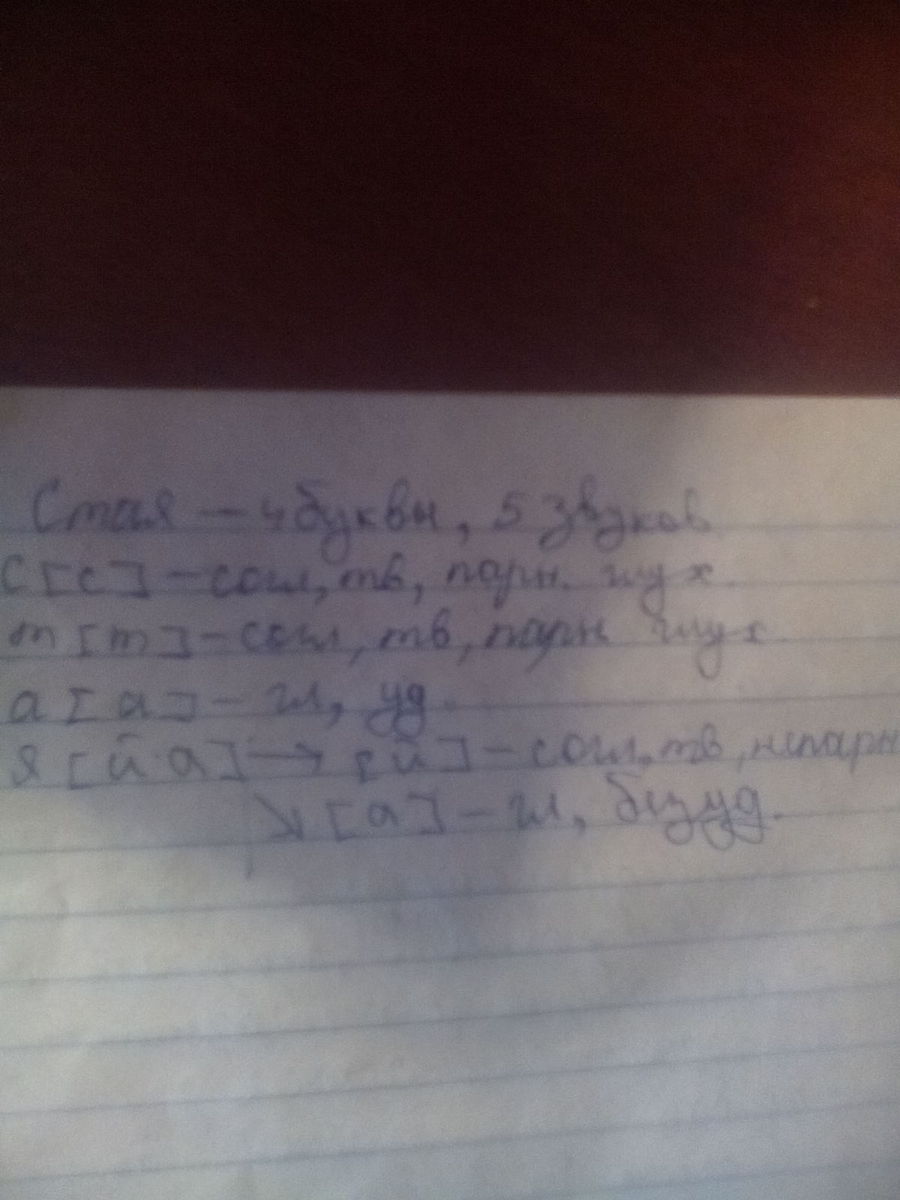 Стая – 4 буквы, 5 звуков
с [с] – согл, тв, парн. глух.
т [т] – согл, тв, парн глух
а [а] – гл, уд.
я [йа] → [й] – согл, тв, непарн
↘ [а] – гл, безуд.